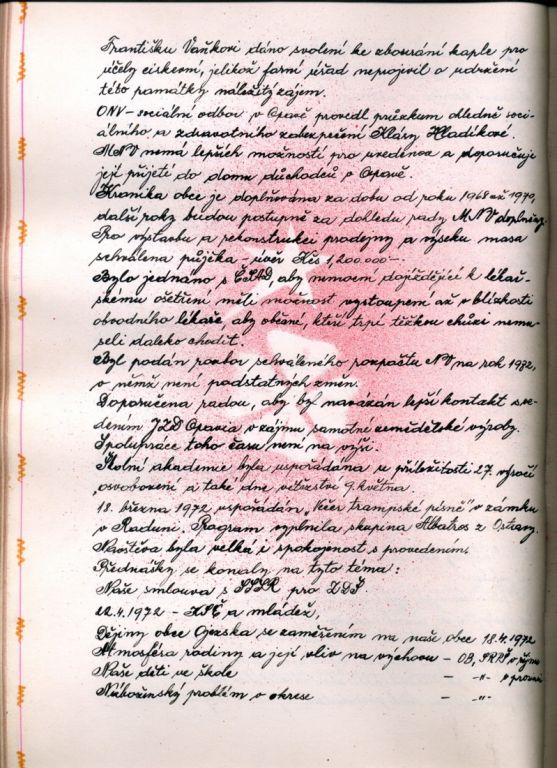 Františku Vaňkovi dáno svolení ke zbourání kaple pro
účely církevní, jelikož farní úřad neprojevil o udržení
této památky náležitý zájem.
ONV – sociální odbor v Opavě provedl průzkum ohledně soci-
álního a zdravotního zabezpečení Kláry Hladíkové.
MNV nemá lepších možností pro uvedenou a doporučuje
její přijetí do domu důchodců v Opavě.
Kronika obce je doplňována za dobu od roku 1968 až 1970,
další roky budou postupně za dohledu rady MNV doplněny.
Pro výstavbu a rekonstrukci prodejny a výseku masa
schválena půjčka – úvěr Kčs 1,200.000–.
Bylo jednáno s ČSAD, aby nemocní dojíždějící k lékař-
skému ošetření měli možnost vystoupení až v blízkosti
obvodního lékaře, aby občané, kteří trpí těžkou chůzí nemu-
seli daleko chodit.
Byl podán rozbor schváleného rozpočtu NV na rok 1972,
v němž není podstatných změn.
Doporučena radou, aby byl navázán lepší kontakt s ve-
dením JZD Opavia v zájmu samotné zemědělské výroby.
Spolupráce toho času není na výši.
Školní akademie byla uspořádána u příležitosti 27. výročí
osvobození a také dne vítězství 9. května.
18. března 1972 uspořádán „Večer trampské písně" v zámku
v Raduni. Program vyplnila skupina Albatros z Ostravy.
Návštěva byla velká i spokojenost s provedením.
Přednášky se konaly na tyto téma:
Naše smlouva s SSSR pro ZDŠ.
22.4.1972 – KSČ a mládež,
Dějiny obce Opavska se zaměřením na naše obce 18.4.1972
Atmosféra rodiny a její vliv na výchovu – OB, SRPŠ v říjnu
Naše děti ve škole – -"- v prosinci
Náboženský problém v okrese – -"-